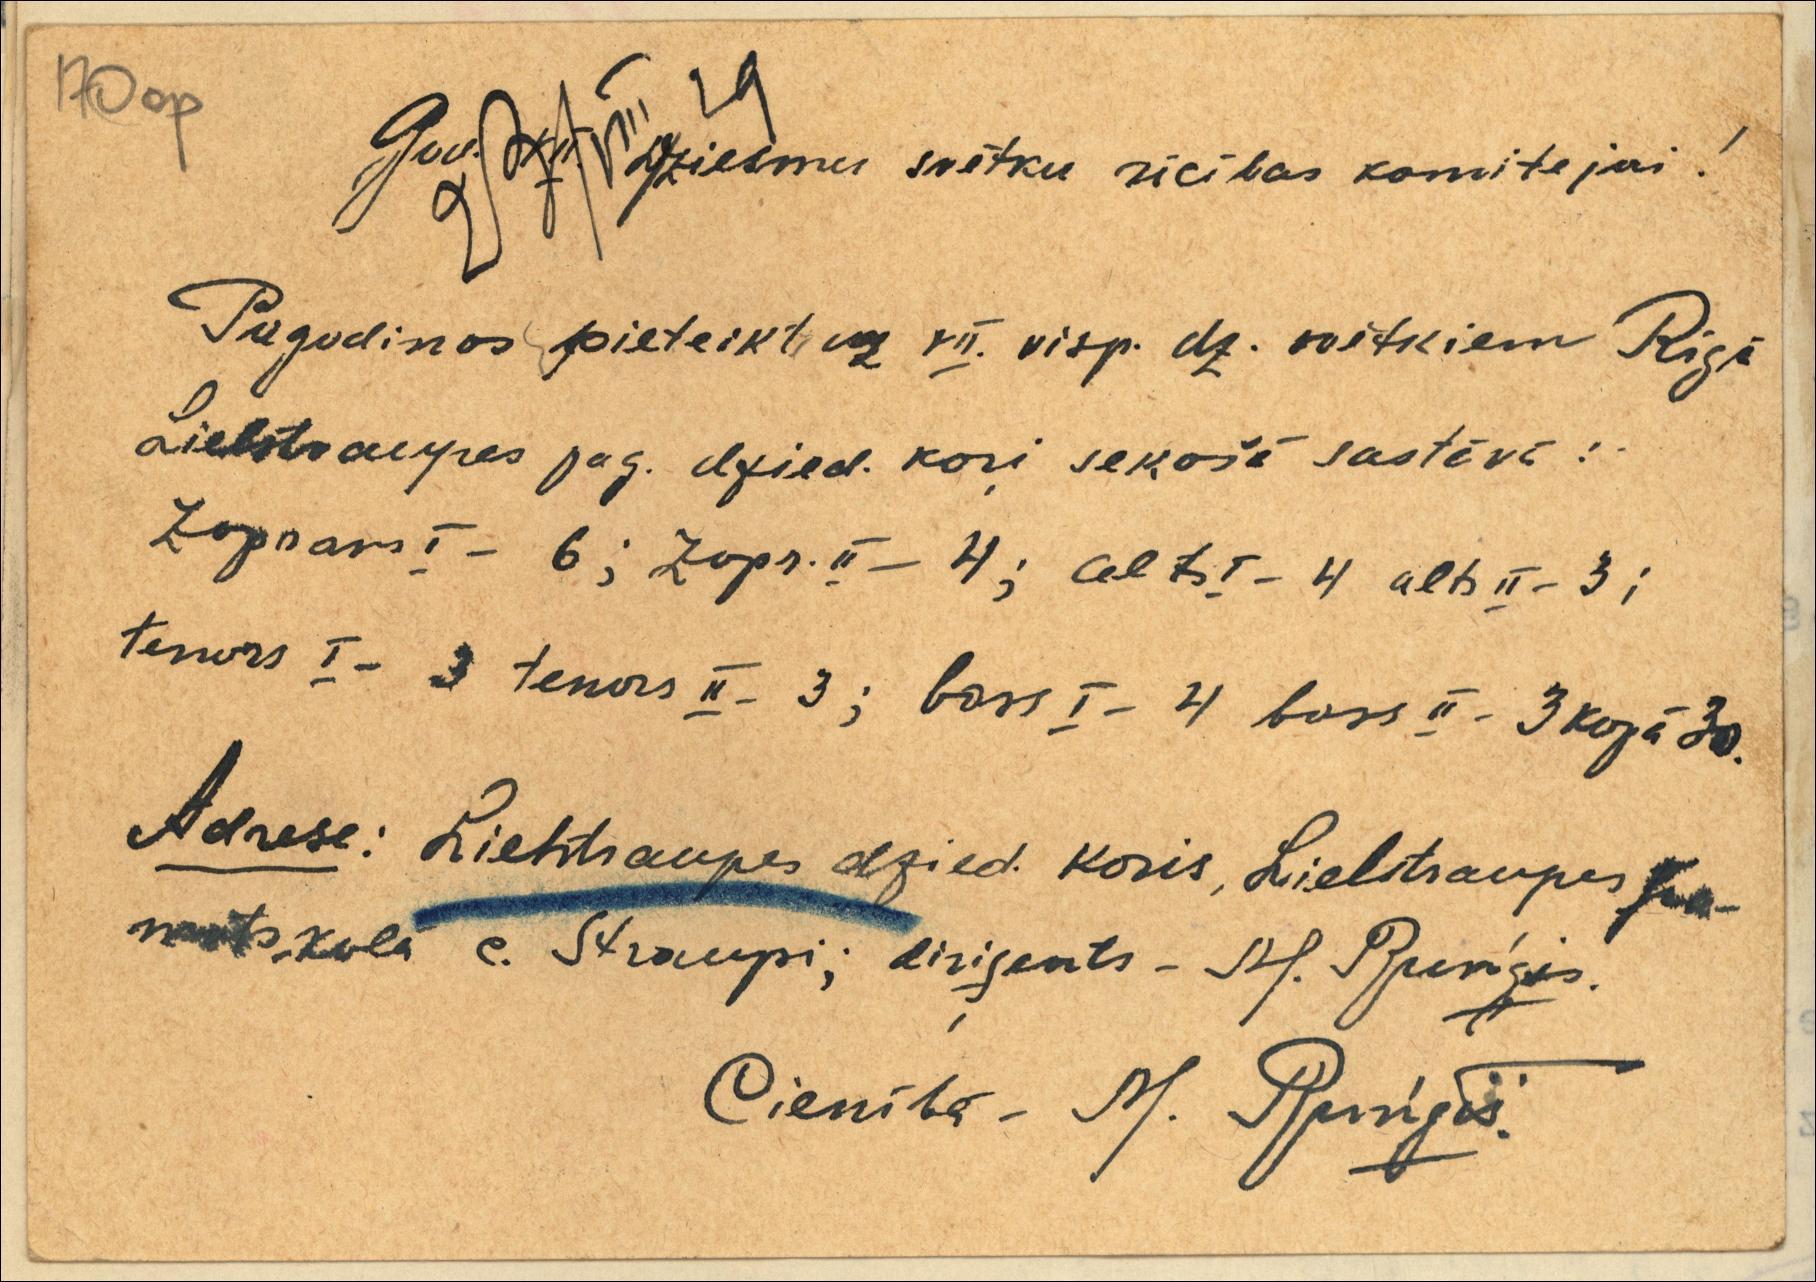 170 op
God. VII. dziesmu svētku rīcības komitejai!
Pagodinos pieteikt uz VII. visp. dz. svētkiem Rīgā
Lielstraupes pag. dzied. koŗi sekošā sastāvā:
Soprans I - 6; Sopr. II - 4; alts I - 4 alts II - 3;
tenors I - 3 tenors II - 3; bass I - 4 bass II - 3 kopā 30.
Adrese: Lielstraupes dzied. koris, Lielstraupes pa-
matskolā c. Straupi; diriģents - M.
Cienībā - M.